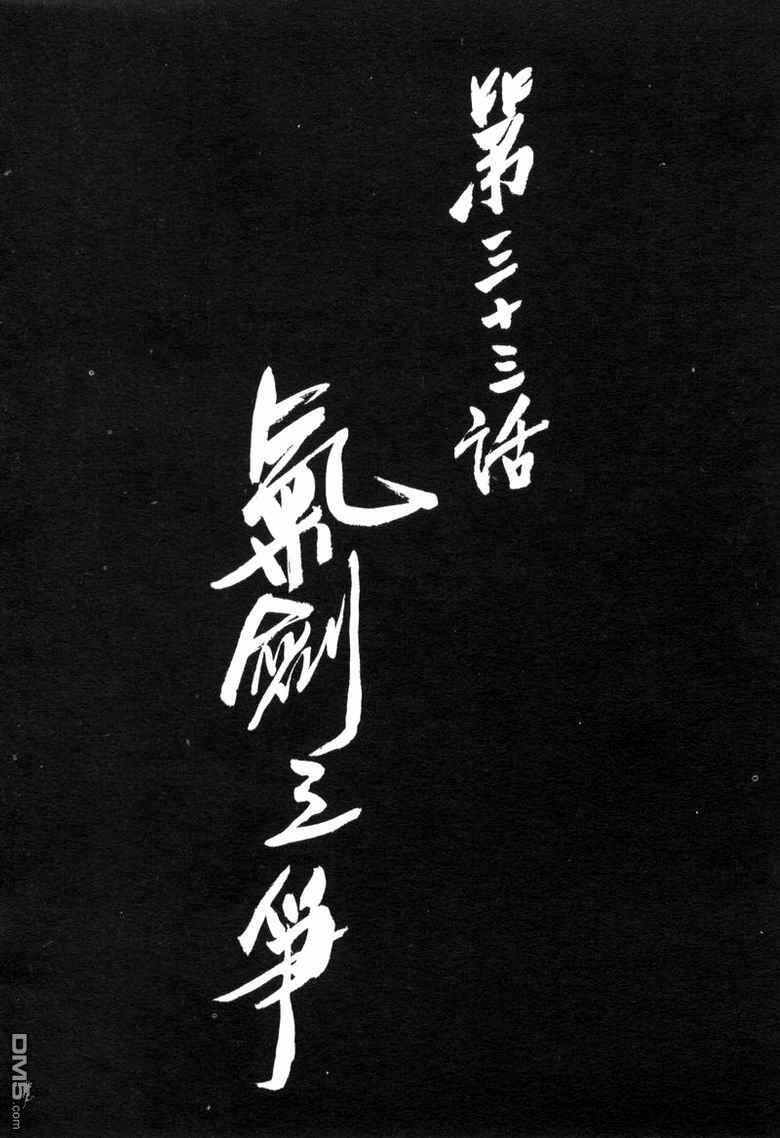 第三十三話
氣劍之爭
DM5.com